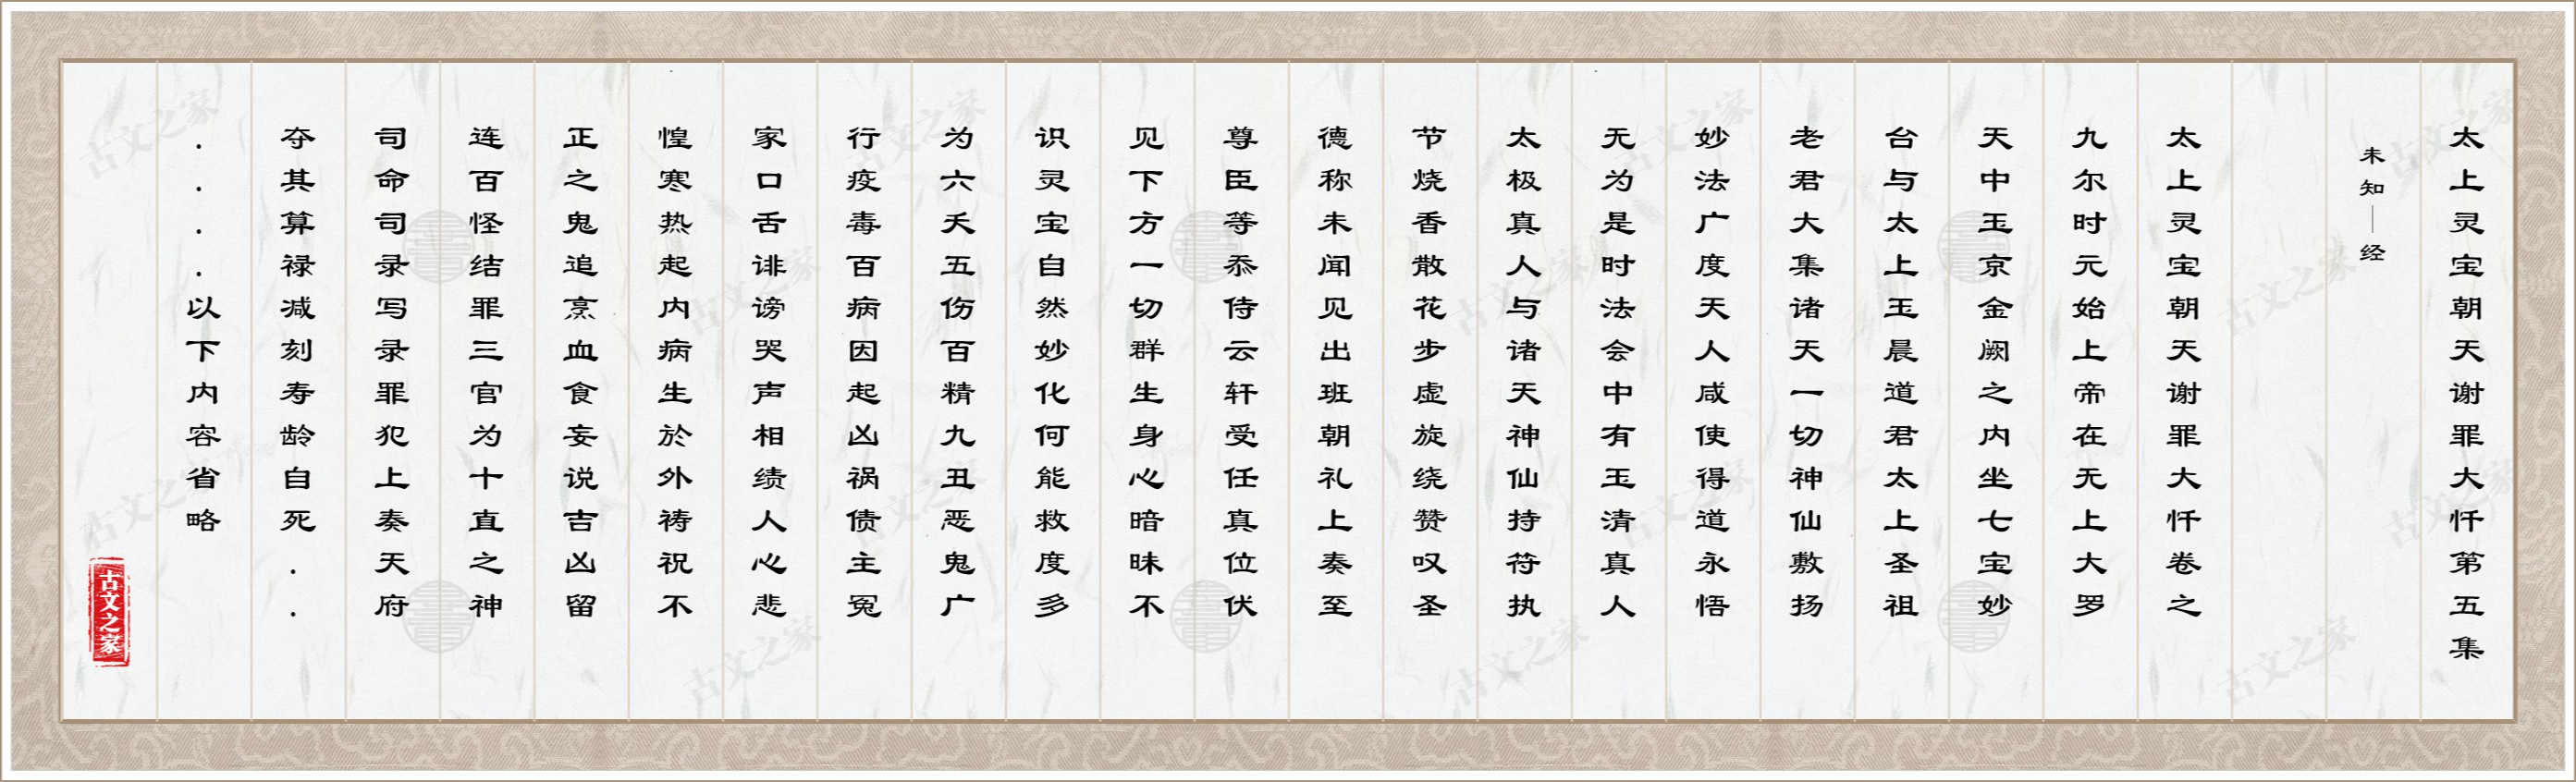 太上灵宝朝天谢罪大忏第五集
未知｜经
太上灵宝朝天谢罪大忏卷之
九尔时元始上帝在无上大罗
天中玉京金阙之内坐七宝妙
台与太上玉晨道君太上圣祖
老君大集诸天一切神仙敷扬
妙法广度天人咸使得道永悟
无为是时法会中有玉清真人
太极真人与诸天神仙持符执
节烧香散花步虚旋绕赞叹圣
德称未闻见出班朝礼上奏至
尊臣等忝侍云轩受任真位伏
见下方一切群生身心暗昧不
识灵宝自然妙化何能救度多
为六夭五伤百精九丑恶鬼广
行疫毒百病因起凶祸债主冤
家口舌诽谤哭声相绩人心悲
惶寒热起内病生於外祷祝不
正之鬼追烹血食妄说吉凶留
连百怪结罪三官为十直之神
司命司录写录罪犯上奏天府
夺其算禄减刻寿龄自死..
....以下内容省略
古文之家